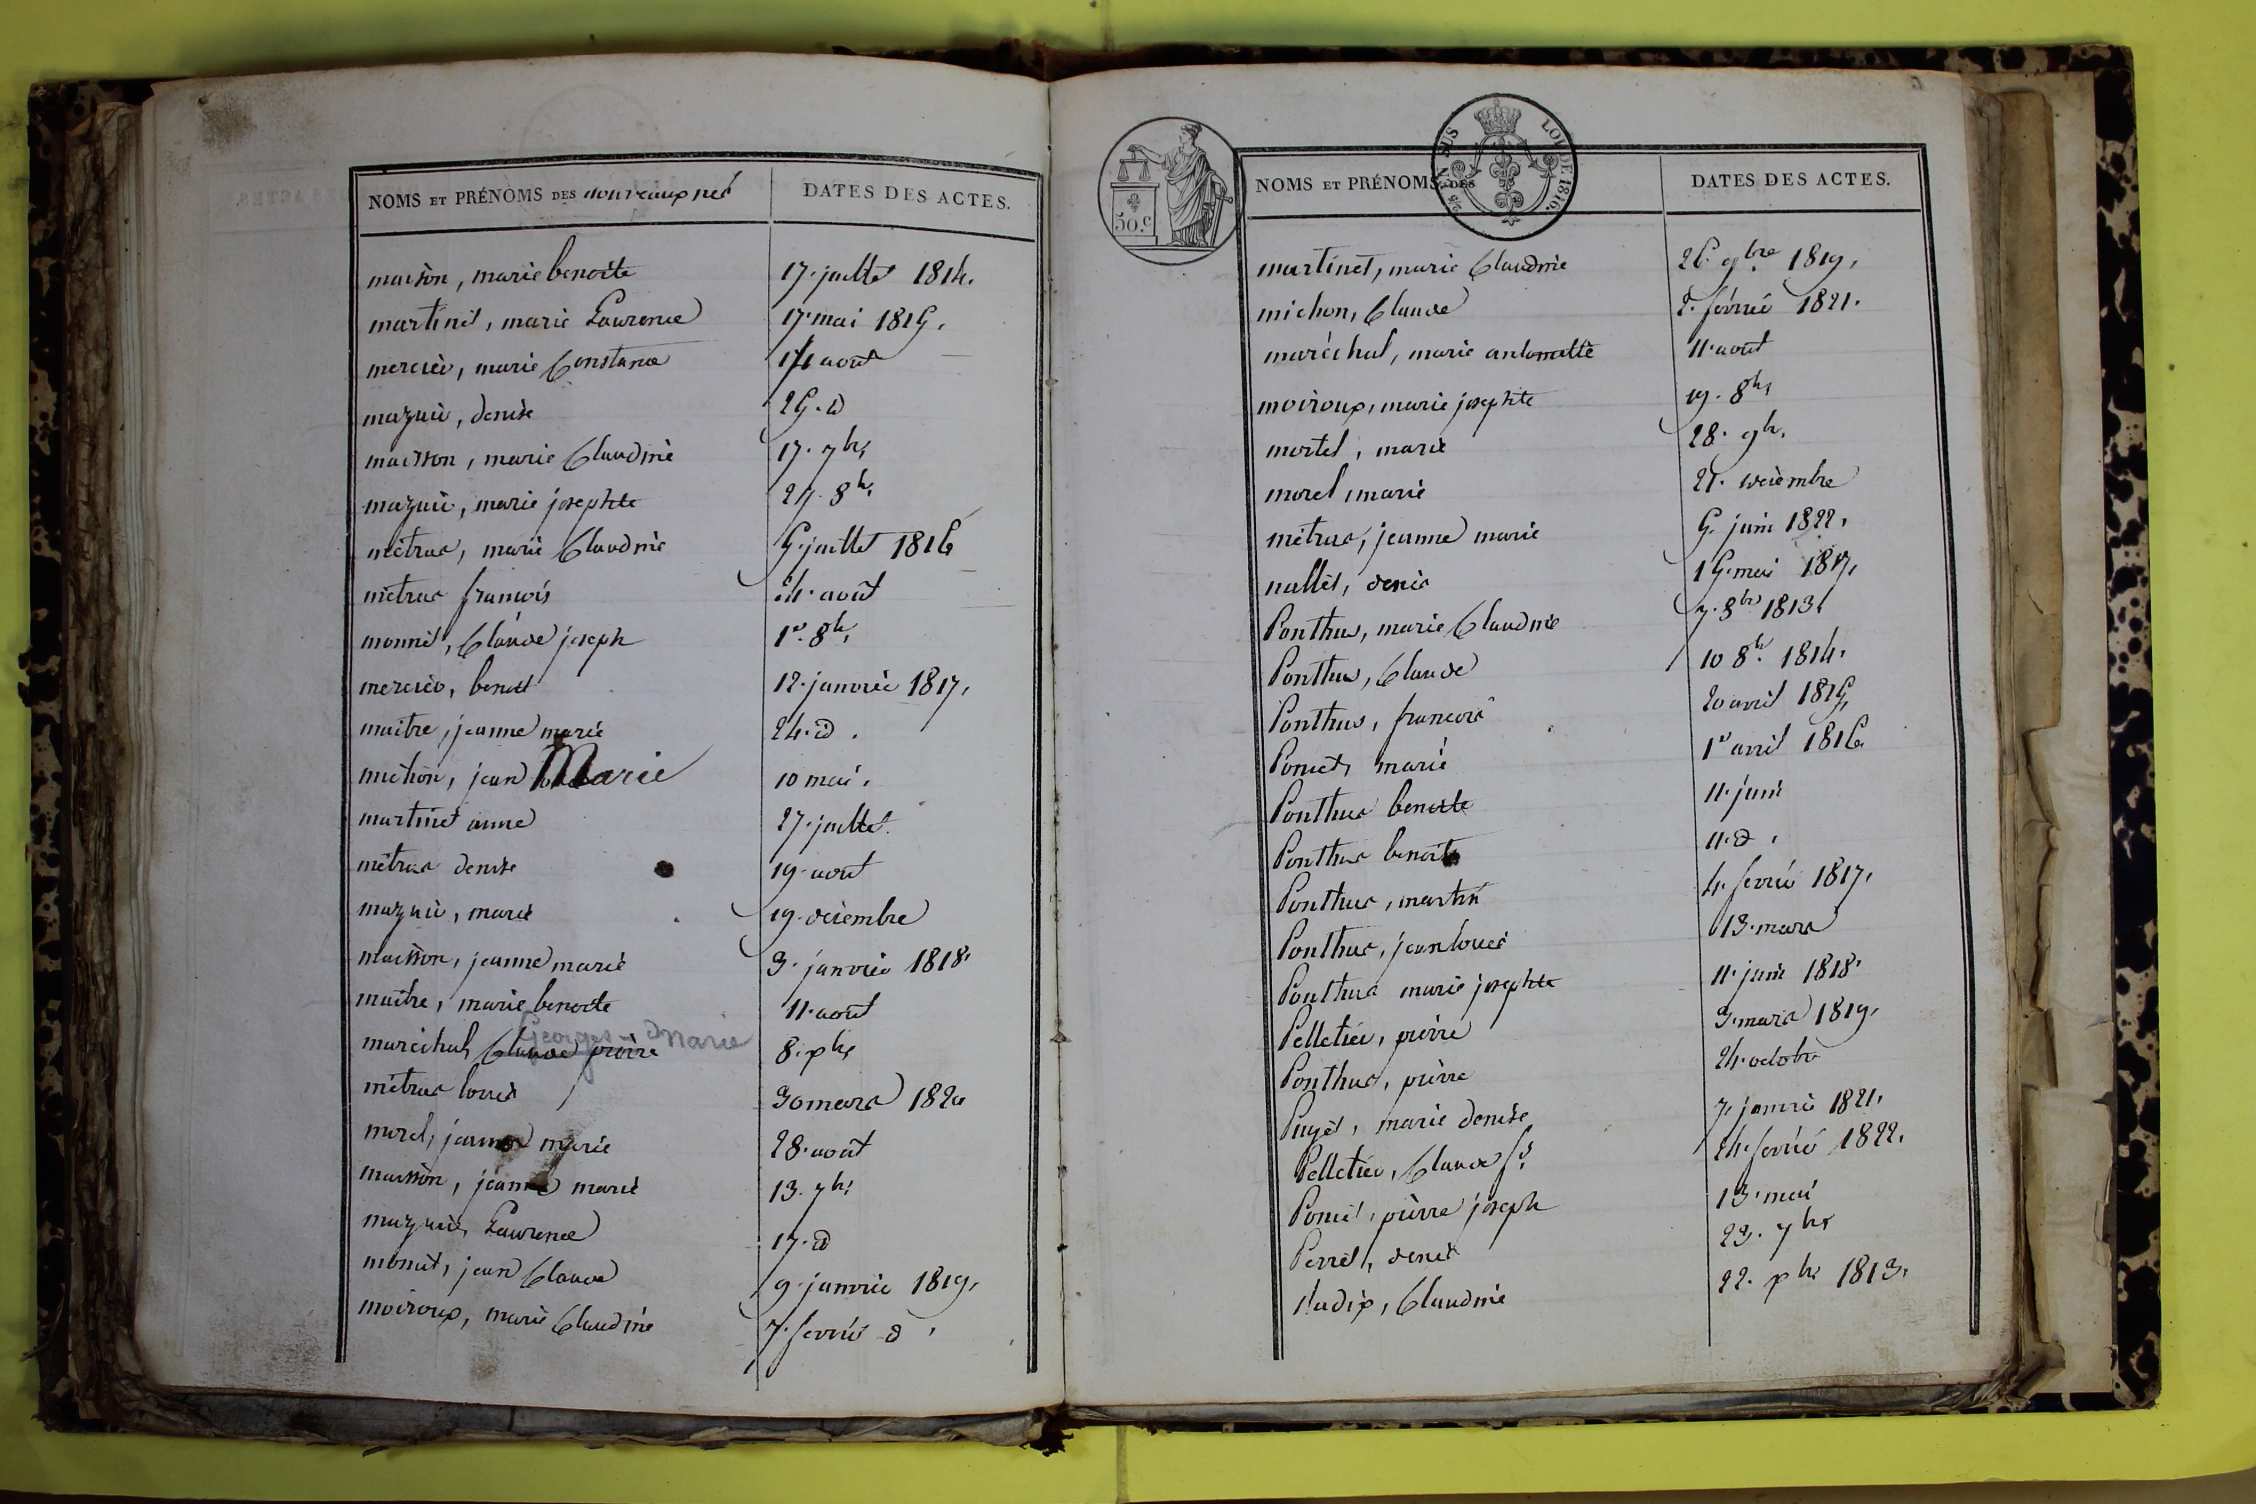 NOMS ET PRÉNOMS DES nouveaux nés DATES DES ACTES.
maison, marie benoite 17. juillet 1814.
martinet, marie Laurence 17. mai 1815.
mercier, marie Constance 14 août
mazuir, denise 25. d
maisson, marie Claudine 17. 7bre
mazuir, marie josephte 27. 8bre
métras, marie Claudine 5. juillet 1816
métras françois 24. août
monnet, Claude joseph 1er 8bre
mercier, benoit 12. janvier 1817.
maitre, jeanne marie 24. d.
michon, jean Marie 10 mai.
martinet anne 27. juillet.
métras denise 19. août
mazuir, marie 19. décembre
maisson, jeanne marie 3. janvier 1818.
maitre, marie benoite 11. août
Georges-Marie
maréchal, Claude pierre 8. xbre
métras louis 30 mars 1820
morel, jeanne marie 28. août
maisson, jeanne marie 13. 7bre
mazuir, Laurence 17. d
monet, jean Claude 9. janvier 1819.
moiroux, marie Claudine 7. fevrier d.
50.C
LOI DE 1816.
NOMS ET PRÉNOMS DES DATES DES ACTES.
martinet, marie Claudine 26. 9bre 1819.
michon, Claude 2. février 1821.
maréchal, marie antoinette 11. août
moiroux, marie josephte 19. 8bre
mortel, marie 28. 9bre
morel, marie 21. décembre
métras, jeanne marie 5. juin 1822.
nallet, denis 15. mai 1817.
Ponthus, marie Claudine 7. 8bre 1813
Ponthus, Claude 10 8bre 1814.
Ponthus, françois 20 avril 1815
Poncet, marie 1er avril 1816
Ponthus benoite 11. juin
Ponthus benoite 11. d.
Ponthus, martin 4. fevrier 1817.
Ponthus, jean louis 13. mars
Ponthus marie josephte 11. juin 1818.
Pelletier, pierre 3. mars 1819.
Ponthus, pierre 24. octobre
Puyet, marie denise 7. janvier 1821.
Pelletier, Claude fs 24. fevrier 1822.
Poncet, pierre joseph 13. mai
Perret, denis 23. 7bre
Claudine 22. xbre 1813.